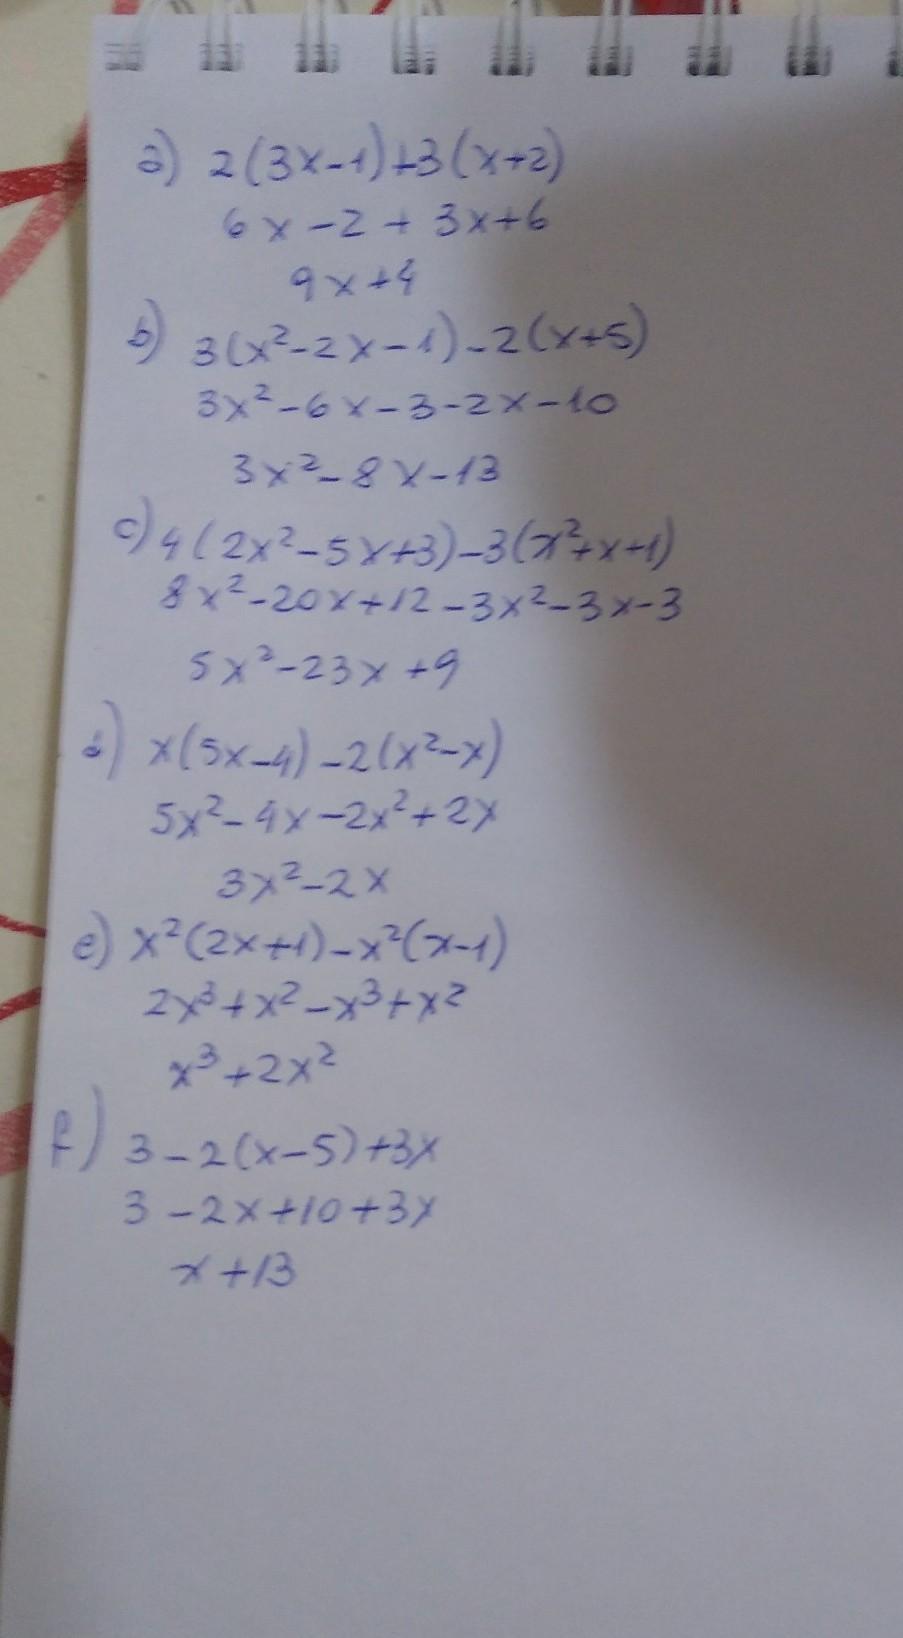 a) 2(3x-1)+3(x+2)
6x-2+3x+6
9x+4
b) 3(x²-2x-1)-2(x+5)
3x²-6x-3-2x-10
3x²-8x-13
c) 4(2x²-5x+3)-3(x²+x+1)
8x²-20x+12-3x²-3x-3
5x²-23x+9
d) x(5x-4)-2(x²-x)
5x²-4x-2x²+2x
3x²-2x
e) x²(2x+1)-x²(x-1)
2x³+x²-x³+x²
x³+2x²
f) 3-2(x-5)+3x
3-2x+10+3x
x+13